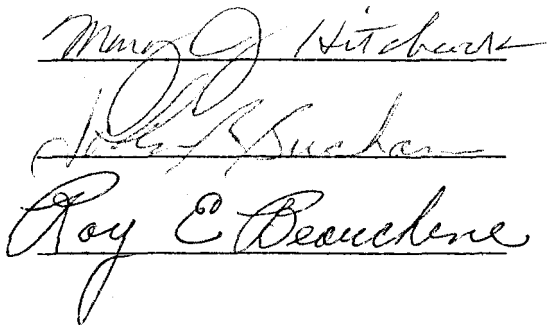 Mary J Hitchcock
John B Buchan
Roy E Beauchene